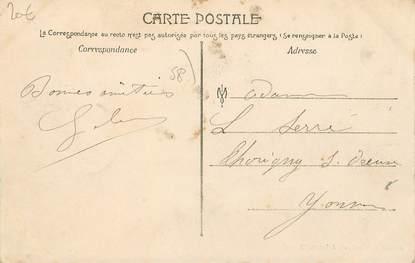 20€
CARTE POSTALE
La Correspondance au recto n'est pas autorisée par tous les pays étrangers (Se renseigner à la Poste)
Correspondance
Adresse
58
Bonnes amitiés
Madame
L Serré
Thorigny S. Oreuse
Yonne